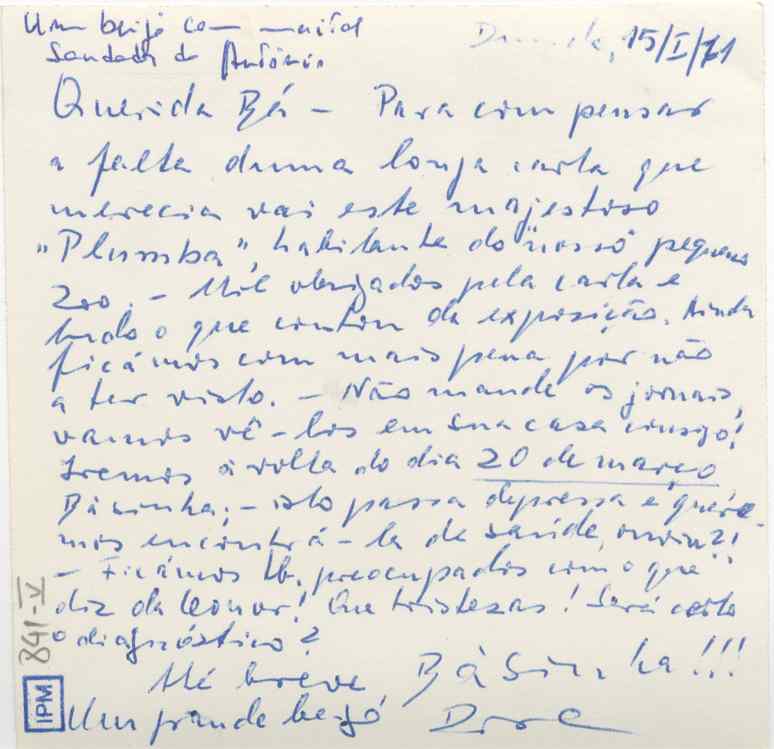 Um beijo com muitas
Saudades do António
15/I/71
Querida Bá – Para compensar
a falta duma longa carta que
merecia vai este majestoso
"Plumba", habitante do "nosso" pequeno
Zoo. – Mil obrigados pela carta e
tudo o que contou da exposição. Ainda
ficámos com mais pena por não
a ter visto. – Não mande os jornais,
vamos vê-los em sua casa consigo!
Iremos à volta do dia 20 de março,
Básinha, – isto passa depressa e quere-
mos encontrá-la de saúde, ouviu?!
– Ficámos tb. preocupados com o que
diz da Leonor! Que tristezas! Será certo
o diagnóstico?
Até breve, Básinha!!!
Um grande beijo
841-V
IPM